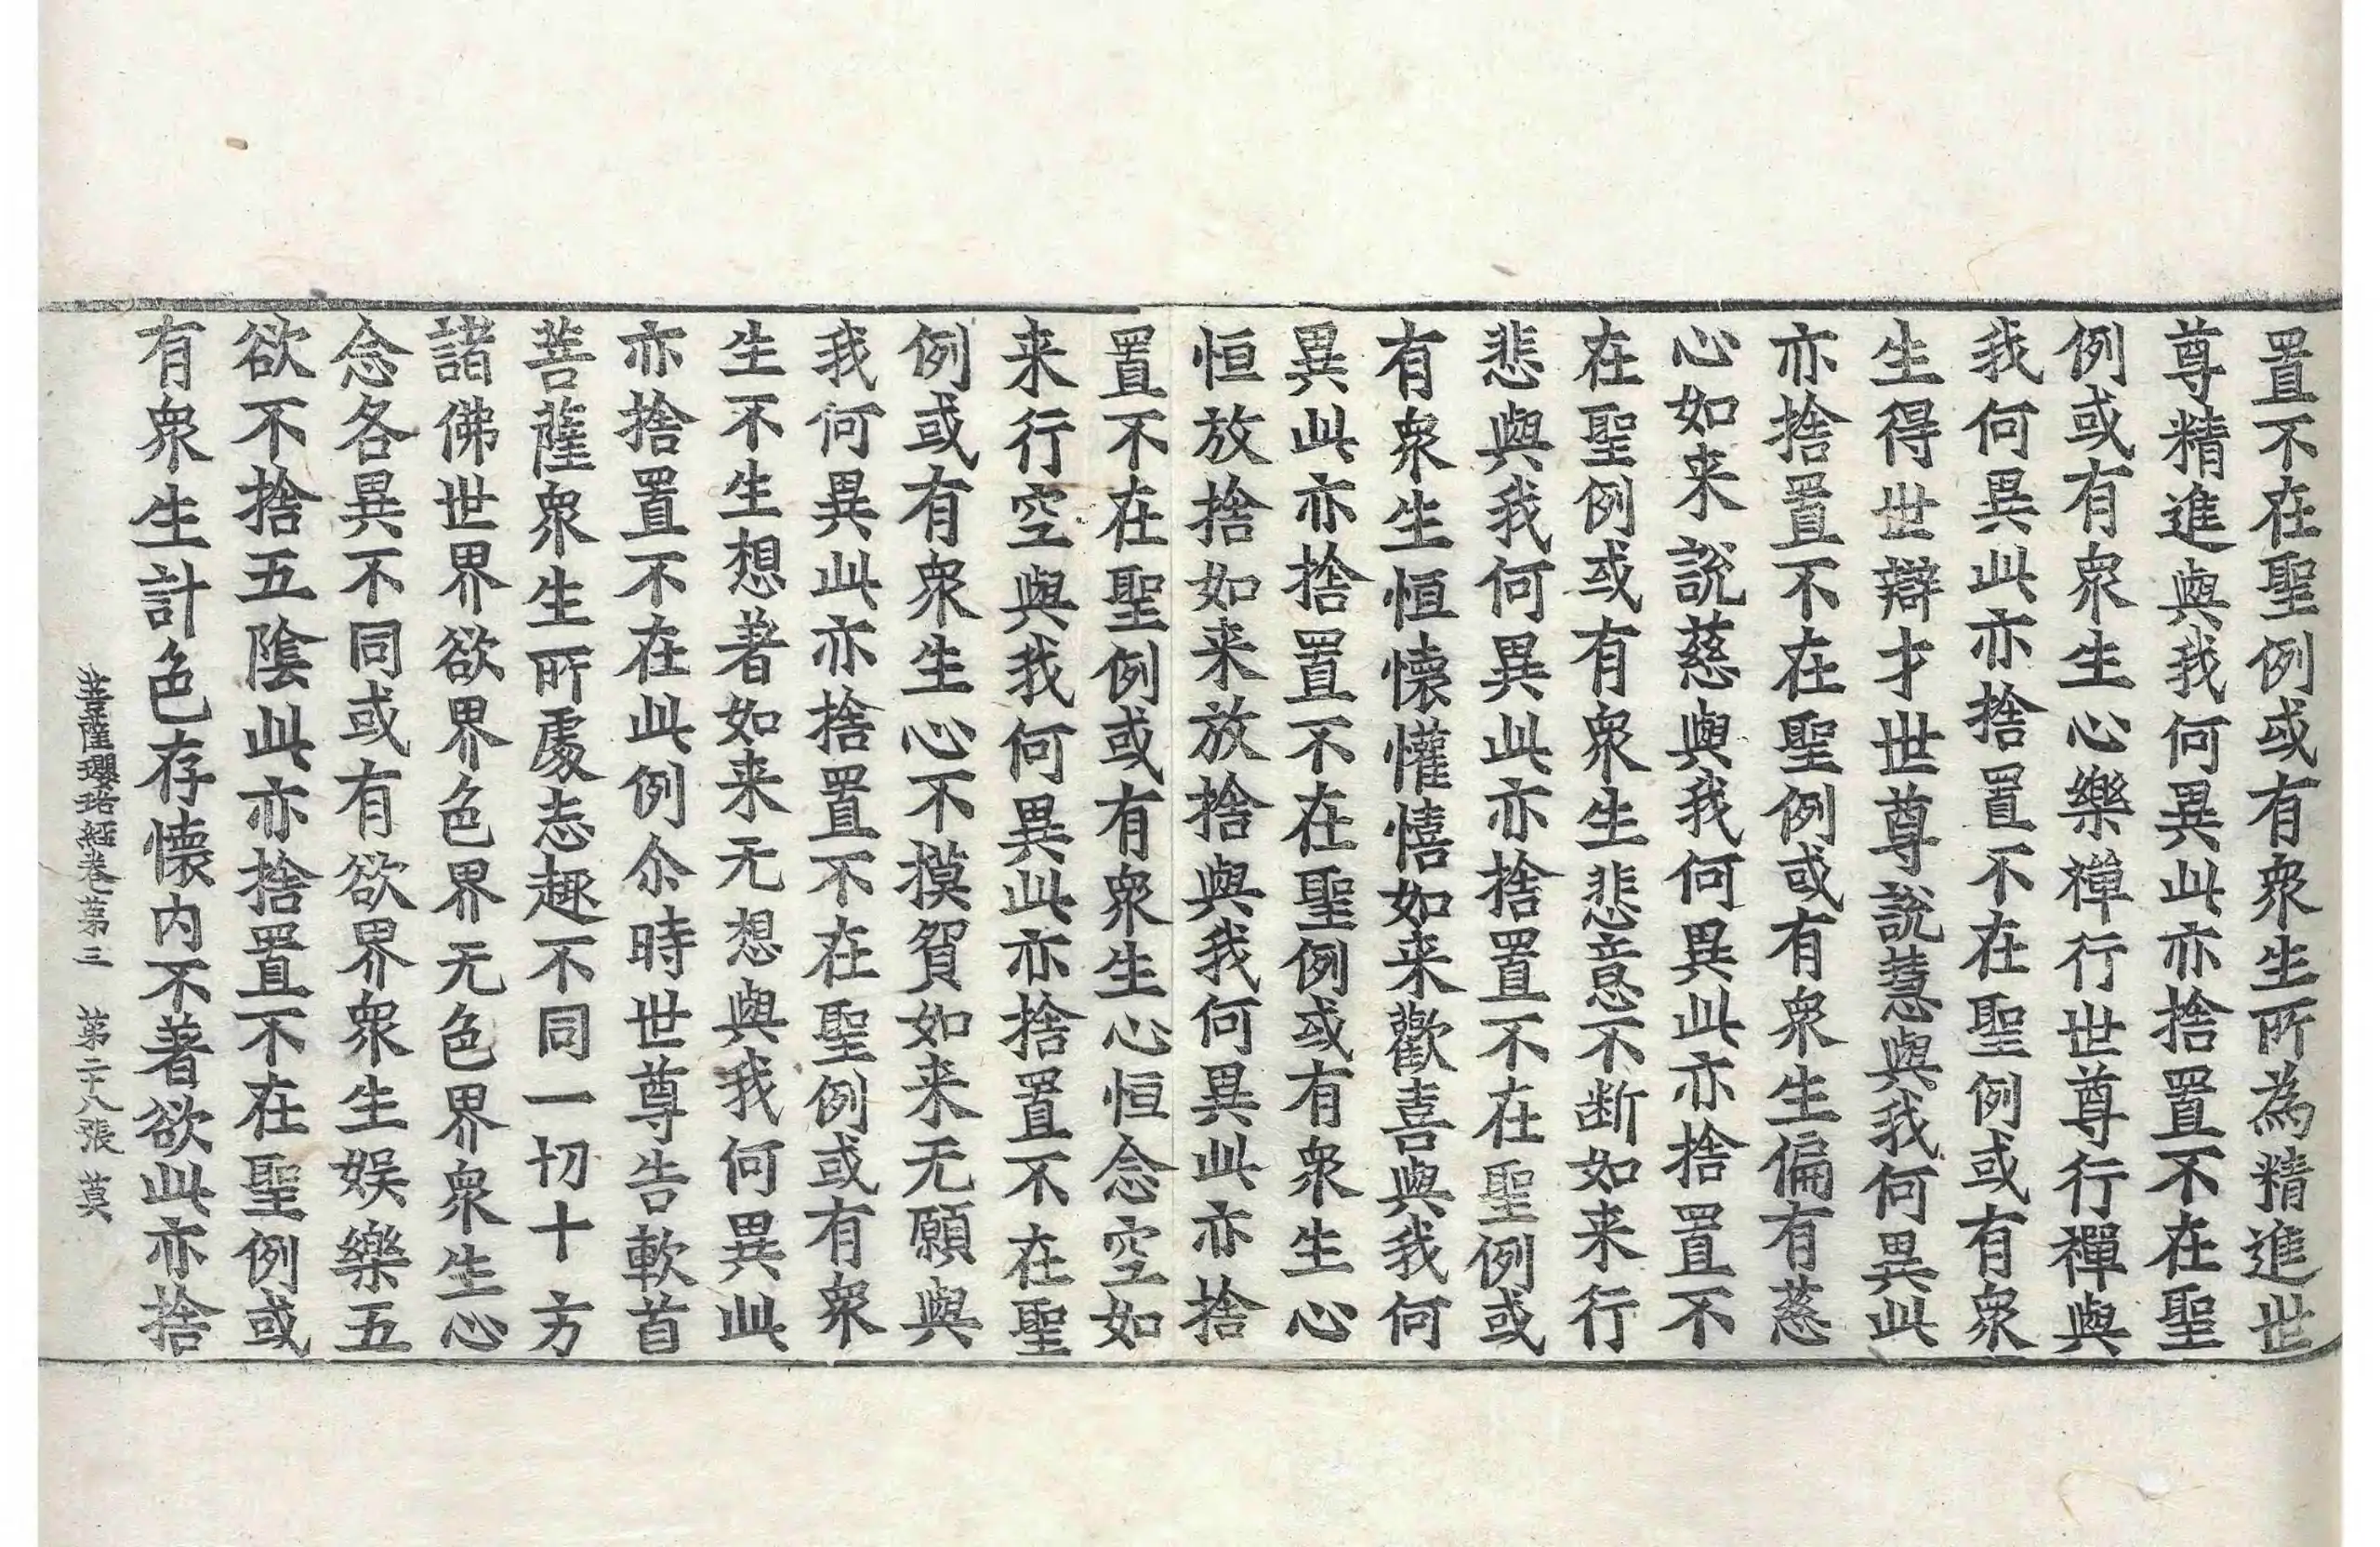 置不在聖例或有衆生所為精進世
尊精進與我何異此亦捨置不在聖
例或有衆生心樂禪行世尊行禪與
我何異此亦捨置不在聖例或有衆
生得世辯才世尊說慧與我何異此
亦捨置不在聖例或有衆生偏有慈
心如来說慈與我何異此亦捨置不
在聖例或有衆生悲意不断如来行
悲與我何異此亦捨置不在聖例或
有衆生恒懐懽憘如来歡喜與我何
異此亦捨置不在聖例或有衆生心
恒放捨如来放捨與我何異此亦捨
置不在聖例或有衆生心恒念空如
来行空與我何異此亦捨置不在聖
例或有衆生心不摸貿如来无願與
我何異此亦捨置不在聖例或有衆
生不生想著如来无想與我何異此
亦捨置不在此例尒時世尊告軟首
菩薩衆生所處志趣不同一切十方
諸佛世界欲界色界无色界衆生心
念各異不同或有欲界衆生娛樂五
欲不捨五陰此亦捨置不在聖例或
有衆生計色存懐内不著欲此亦捨
菩薩瓔珞經卷第三　第二十八張　莫